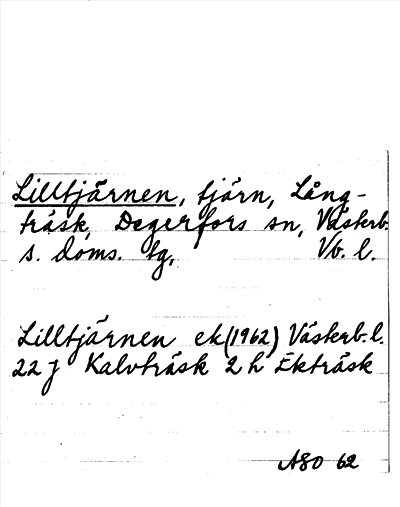 Lilltjärnen, tjärn, Lång-
träsk, Degerfors sn, Västerb.
s. doms. tg, Vb. l.
Lilltjärnen ek (1962) Västerb. l.
22 J Kalvträsk 2 h Ekträsk
ASO 62